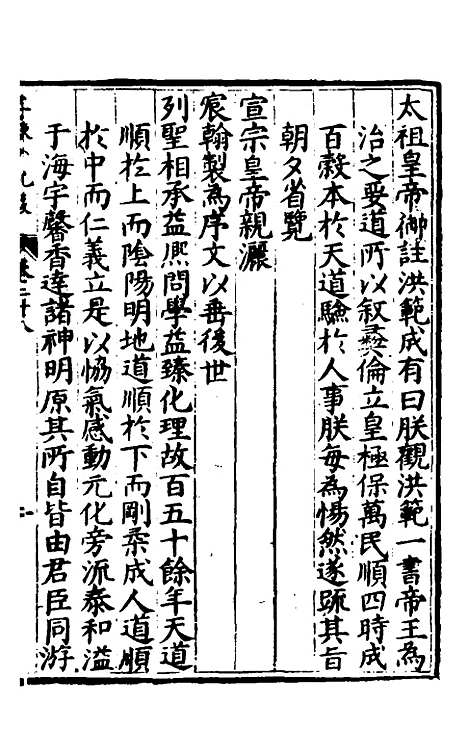 太祖皇帝御註洪範成有曰朕觀洪範一書帝王為
治之要道所以叙彞倫立皇極保萬民順四時成
百榖本於天道驗於人事朕每為惕然遂疏其旨
朝夕省覽
宣宗皇帝親灑
宸翰製為序文以垂後世
列聖相承益熈問學益臻化理故百五十餘年天道
順於上而陰陽明地道順於下而剛柔成人道順
於中而仁義立是以恊氣感動元化旁流泰和溢
于海宇馨香達諸神明原其所自皆由君臣同游
卷二十八